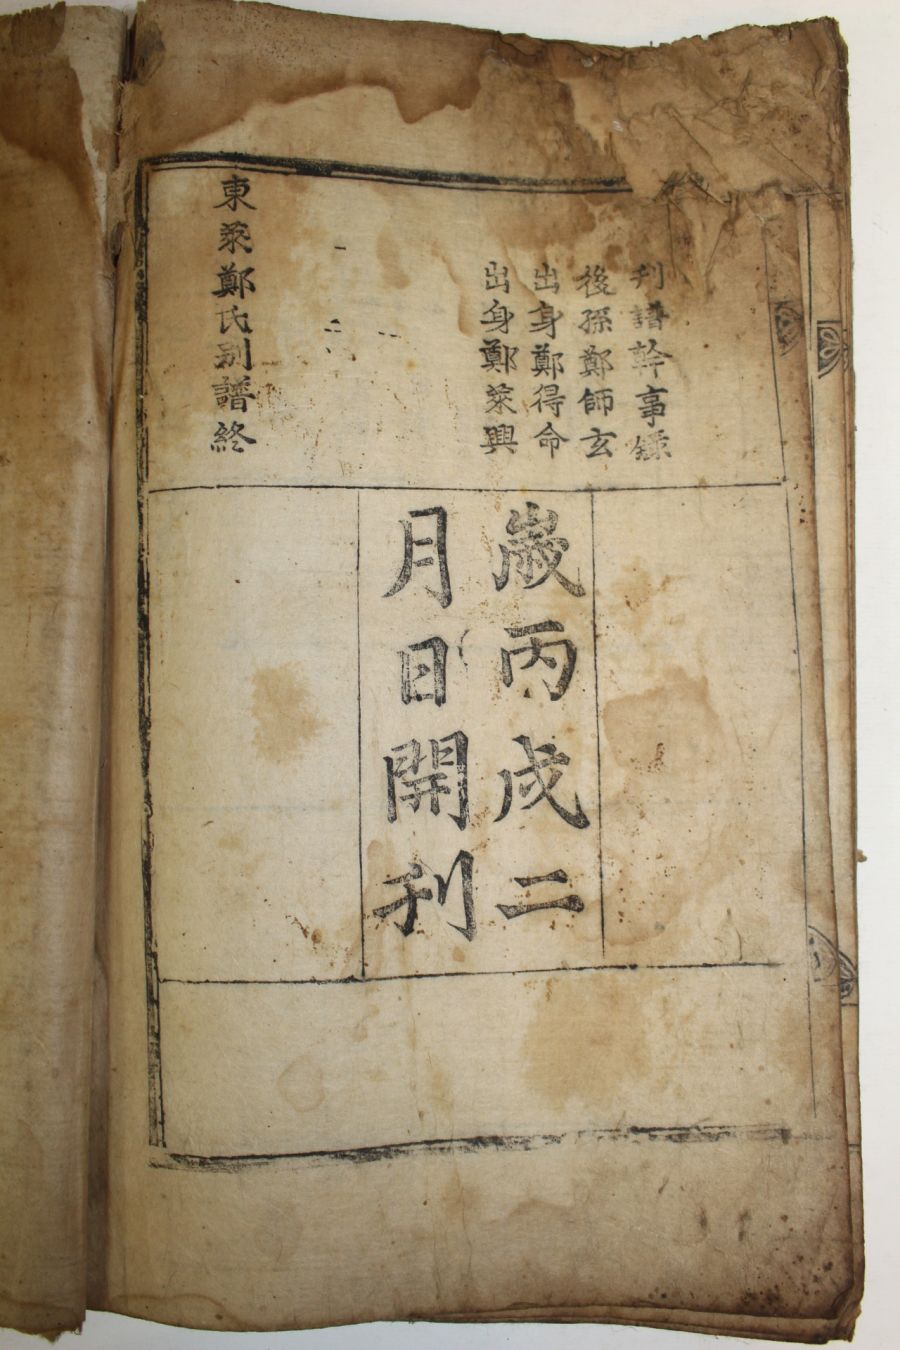 刊譜幹事錄
後孫鄭師玄
出身鄭得命
出身鄭萊興
歲丙戌二
月日開刊
東萊鄭氏別譜終